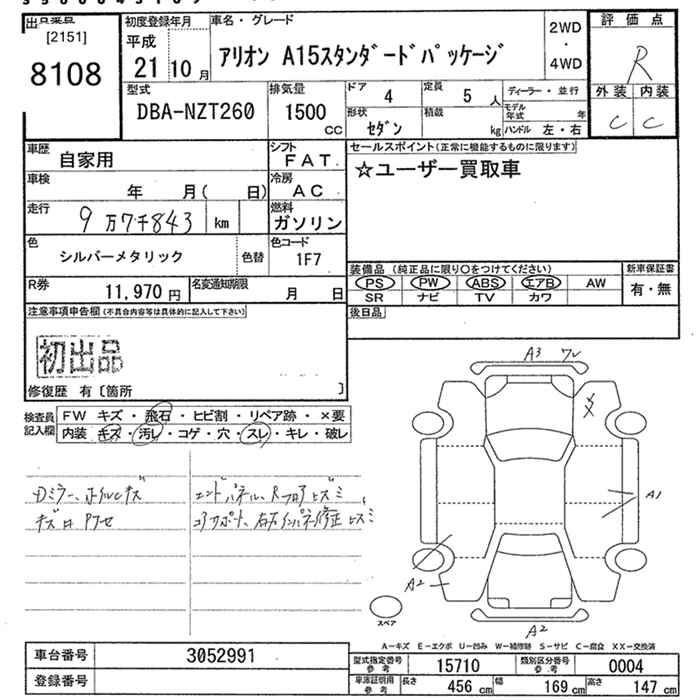 出品番
[2151]
8108
初度登録年月
平成
21 10月
車名・グレード
アリオン A15スタンダードパッケージ
2WD
・
4WD
評価点
R
外装 内装
C C
型式
DBA-NZT260
排気量
1500
cc
ドア
4
定員
5 人
形状
セダン
積載
kg
ディーラー・並行
モデル年式 年
ハンドル 左・右
車歴
自家用
シフト
FAT
車検
年 月( 日)
冷房
AC
走行
9万7千843 km
燃料
ガソリン
色
シルバーメタリック
色替
色コード
1F7
R券
11,970円
名変通知期限
月 日
セールスポイント(正常に機能するものに限ります)
☆ユーザー買取車
装備品(純正品に限り○をつけてください)
PS PW ABS エアB AW
SR ナビ TV カワ
新車保証書
有・無
後日品
注意事項申告欄(不具合内容等は具体的に記入して下さい)
初出品
修復歴 有〔箇所 〕
検査員記入欄
FW キズ・飛石・ヒビ割・リペア跡・×要
内装 キズ・汚レ・コゲ・穴・スレ・キレ・破レ
Dミラー、ホイルCキズ
エンドパネル、Rフロアヒズミ
コアサポート、右左インパネ修正ヒズミ
A3
A1
A2
A2
スペア
A―キズ E―エクボ U―凹み W―補修跡 S―サビ C―腐食 XX―交換済
車台番号
3052991
登録番号
型式指定番号 参考
15710
類別区分番号 参考
0004
車庫証明用 参考
長さ 456cm
幅 169cm
高さ 147cm